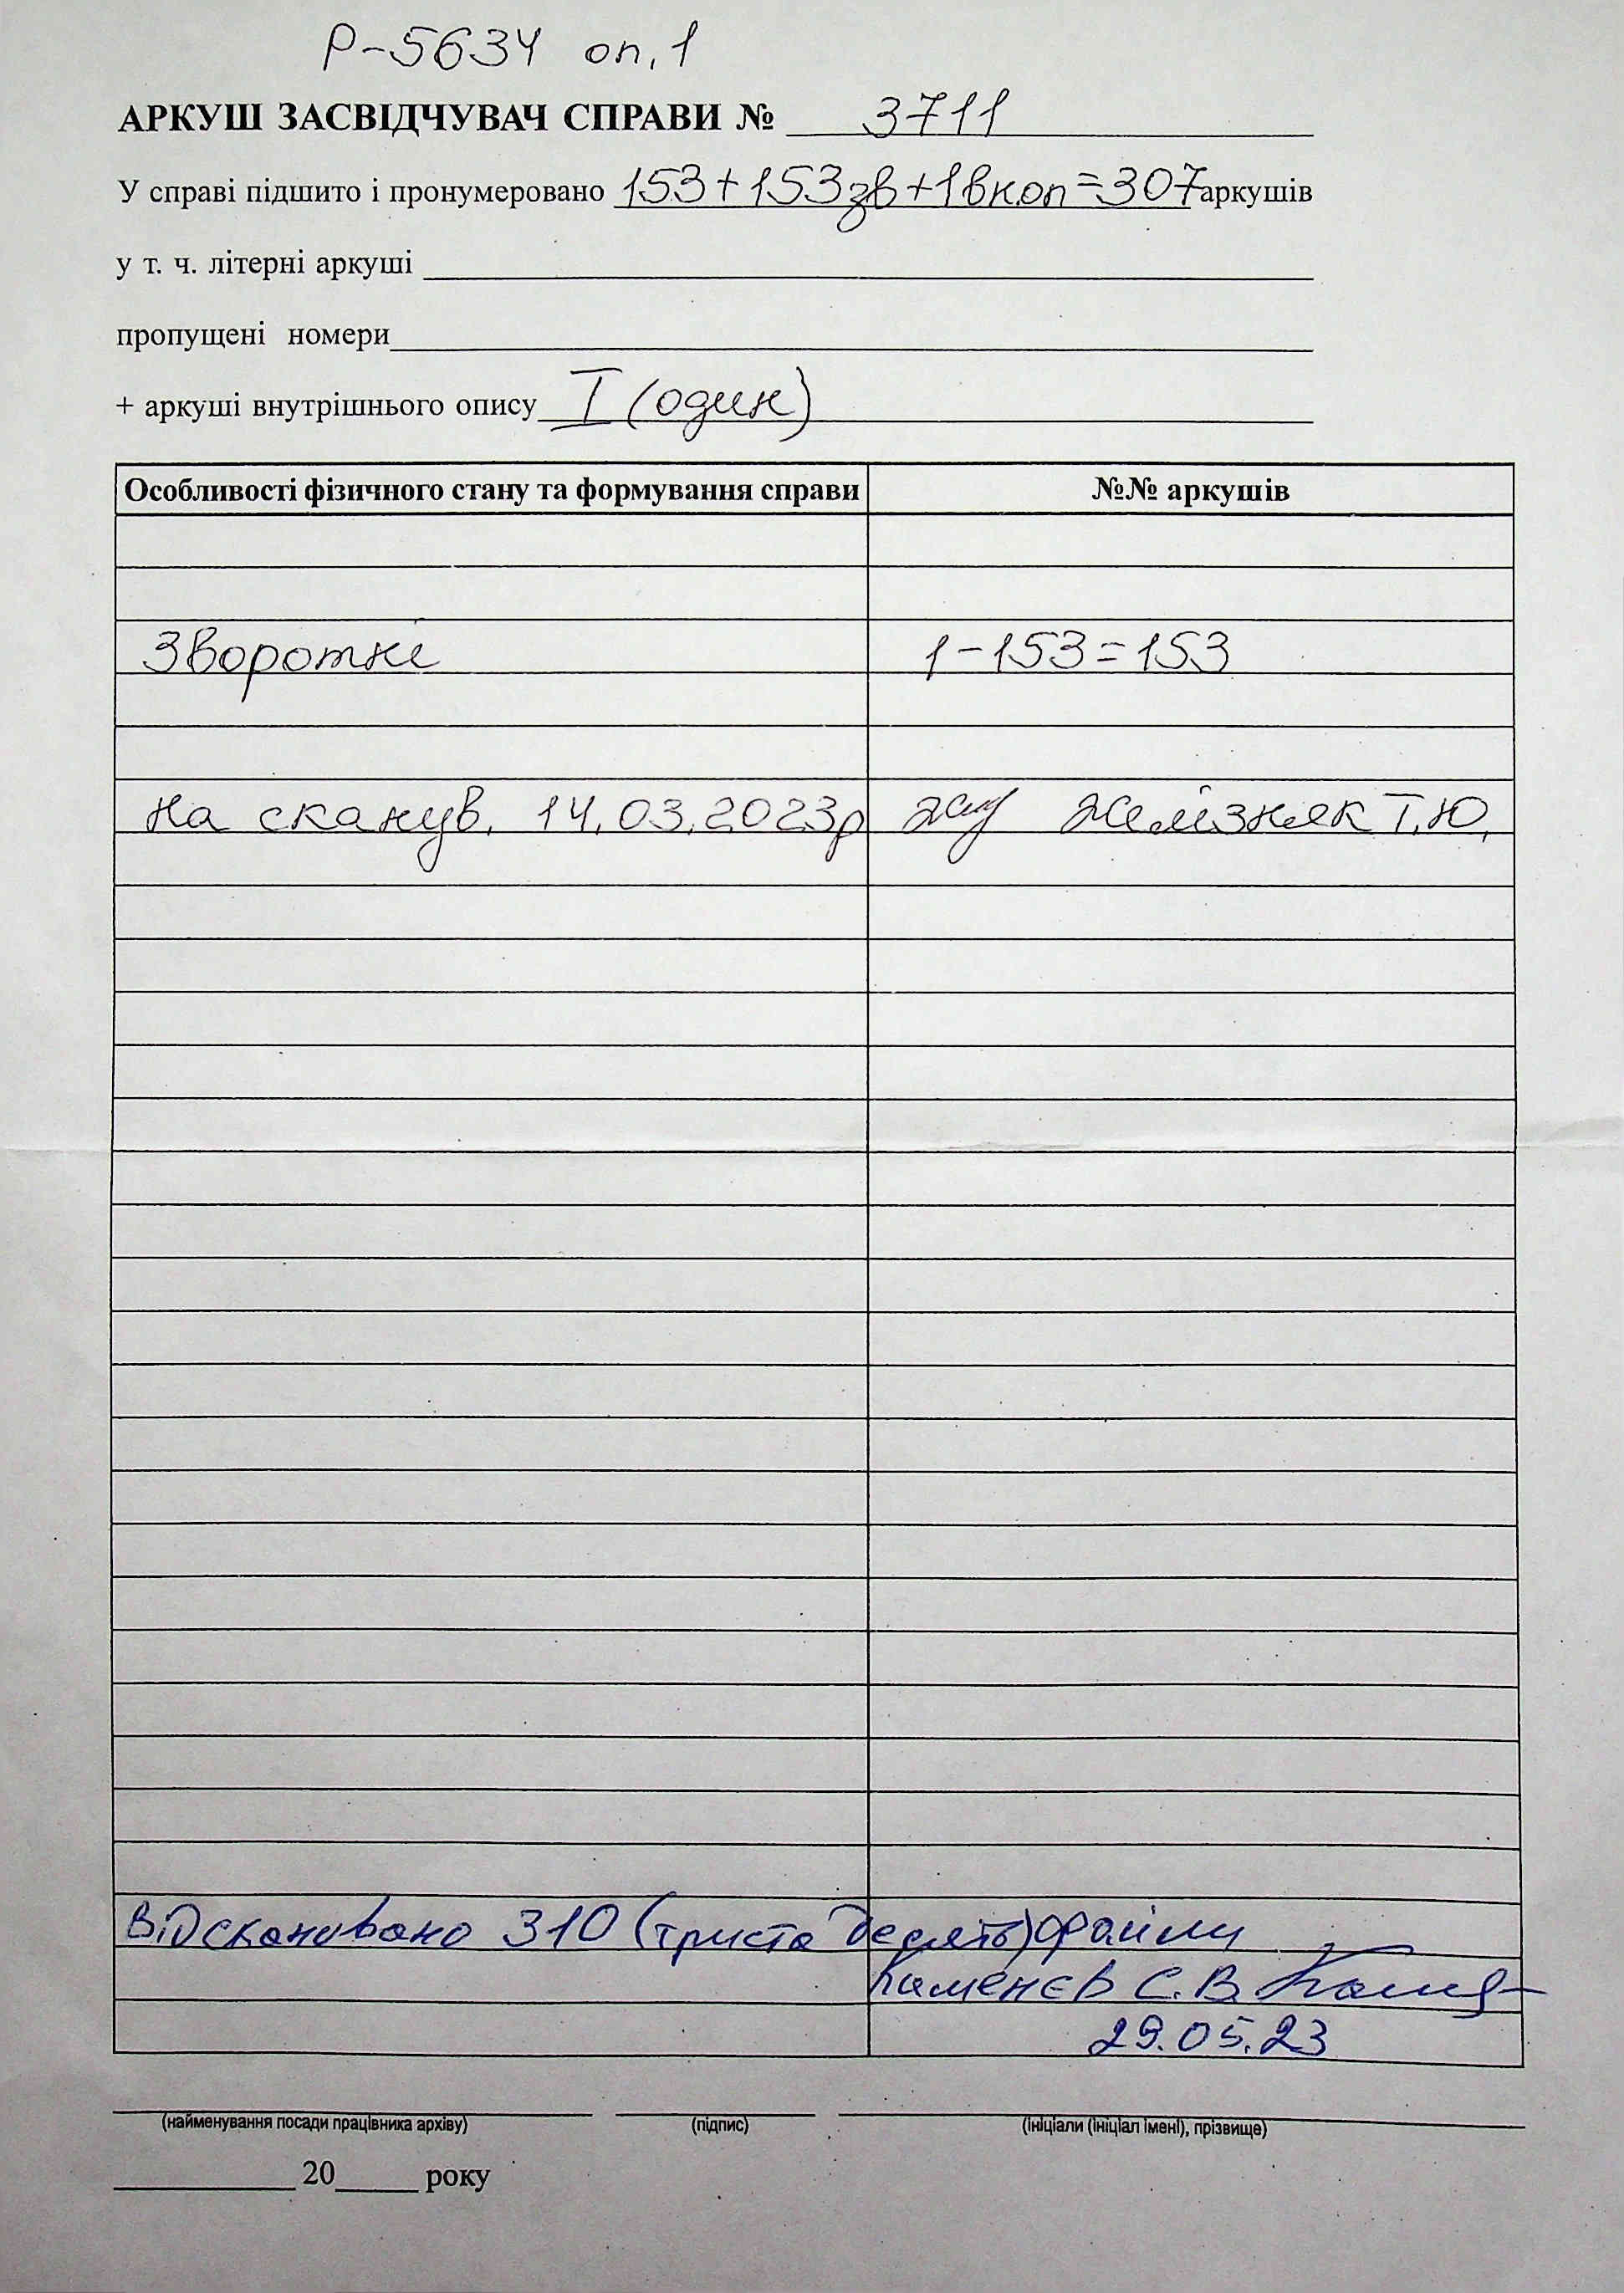 Р-5634 оп.1
АРКУШ ЗАСВІДЧУВАЧ СПРАВИ № 3711
У справі підшито і пронумеровано 153+153зв+1вк.оп=307 аркушів
у т. ч. літерні аркуші
пропущені номери
+ аркуші внутрішнього опису I (один)
Особливості фізичного стану та формування справи №№ аркушів
Зворотні 1-153=153
На сканув. 14.03.2023р Желізняк Т.Ю.
Відскановано 310 (триста десять) файли
Каменєв С.В.
29.05.23
(найменування посади працівника архіву) (підпис) (ініціали (ініціал імені), прізвище)
20 року